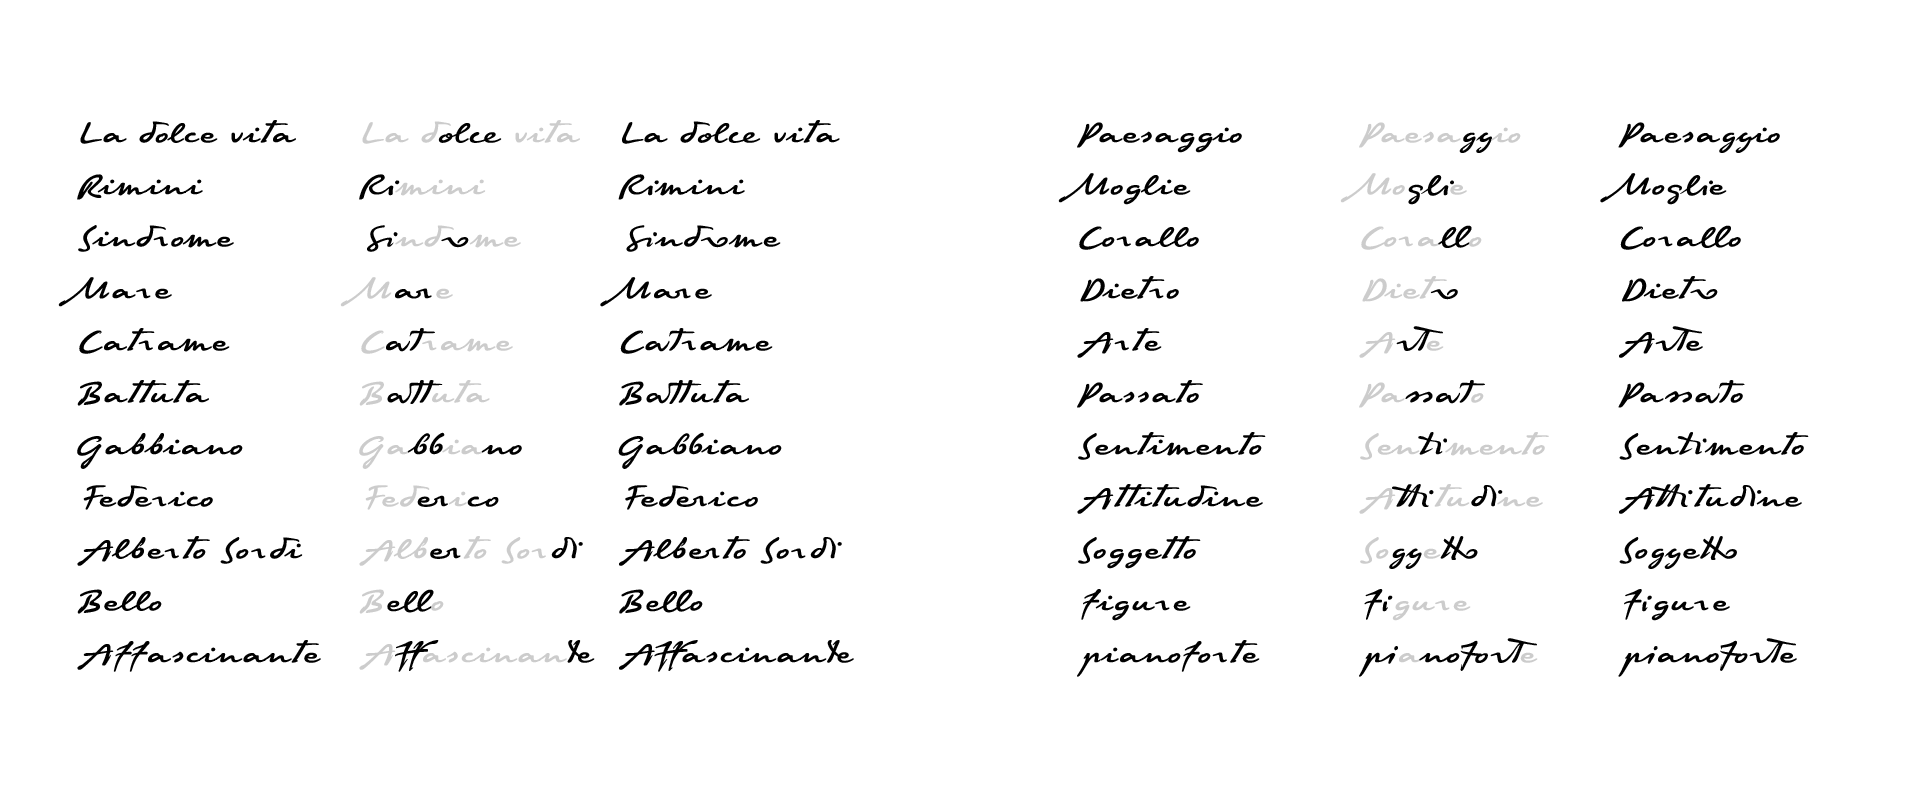 La dolce vita La dolce vita La dolce vita
Rimini Rimini Rimini
Sindrome Sindrome Sindrome
Mare Mare Mare
Catrame Catrame Catrame
Battuta Battuta Battuta
Gabbiano Gabbiano Gabbiano
Federico Federico Federico
Alberto Sordi Alberto Sordi Alberto Sordi
Bello Bello Bello
Affascinante Affascinante Affascinante
Paesaggio Paesaggio Paesaggio
Moglie Moglie Moglie
Corallo Corallo Corallo
Dietro Dietro Dietro
Arte Arte Arte
Passato Passato Passato
Sentimento Sentimento Sentimento
Attitudine Attitudine Attitudine
Soggetto Soggetto Soggetto
Figure Figure Figure
pianoforte pianoforte pianoforte